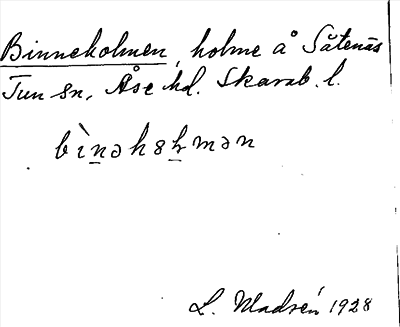 Binneholmen, holme å Såtenäs
Tun sn, Åse hd. Skarab. l.
bìnəhol̥mən
L. Madsén 1928